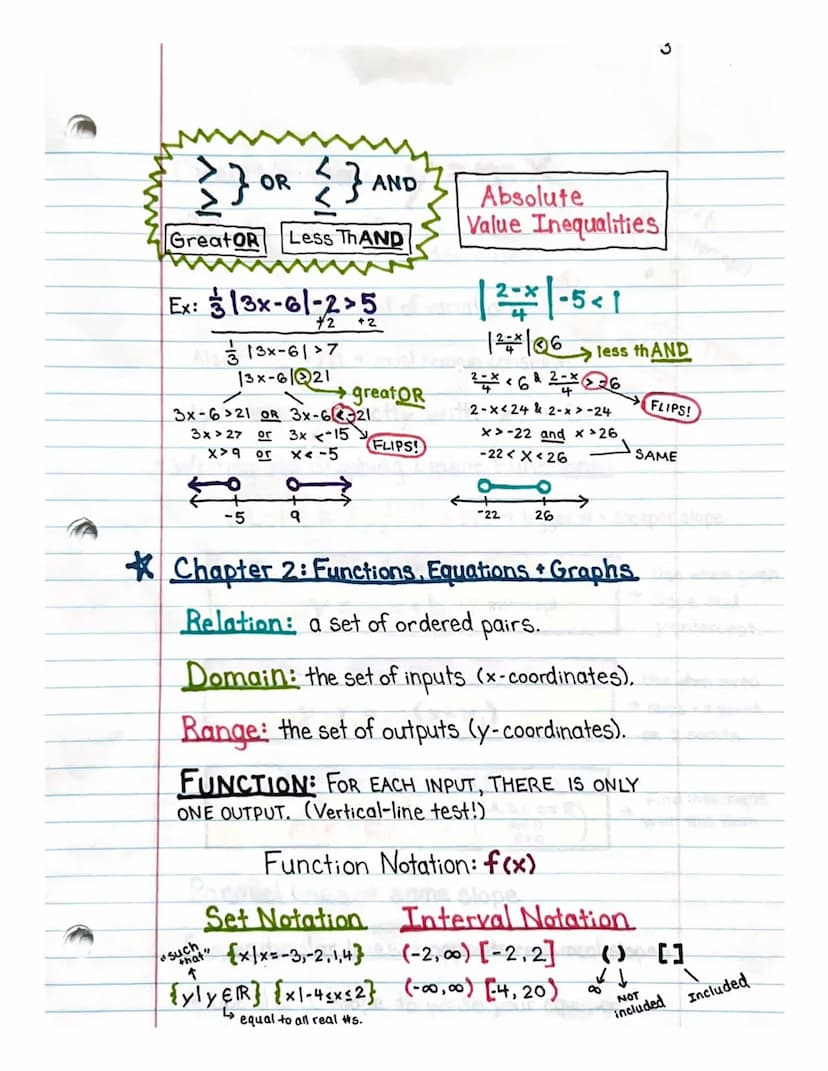 3
> ≥ } OR < ≤ } AND
GreatOR Less ThAND
Absolute
Value Inequalities
Ex: 1/3 |3x-6|-2>5
+2 +2
1/3 |3x-6|>7
|3x-6|>21
→ greatOR
3x-6>21 OR 3x-6<-21
3x>27 or 3x<-15
FLIPS!
x>9 or x<-5
-5 9
|2-x/4|-5<1
|2-x/4|<6
→ less thAND
2-x/4 <6 & 2-x/4 >-6
FLIPS!
2-x<24 & 2-x>-24
x>-22 and x>26
-22<x<26
SAME
-22 26
★ Chapter 2: Functions, Equations + Graphs
Relation: a set of ordered pairs.
Domain: the set of inputs (x-coordinates).
Range: the set of outputs (y-coordinates).
FUNCTION: FOR EACH INPUT, THERE IS ONLY
ONE OUTPUT. (Vertical-line test!)
Function Notation: f(x)
Set Notation
"such that" {x|x=-3,-2,1,4}
{y|y∈ℝ} {x|-4≤x≤2}
↳ equal to all real #s.
Interval Notation
(-2,∞) [-2,2]
(-∞,∞) [-4,20)
( ) [ ]
∞ NOT included Included